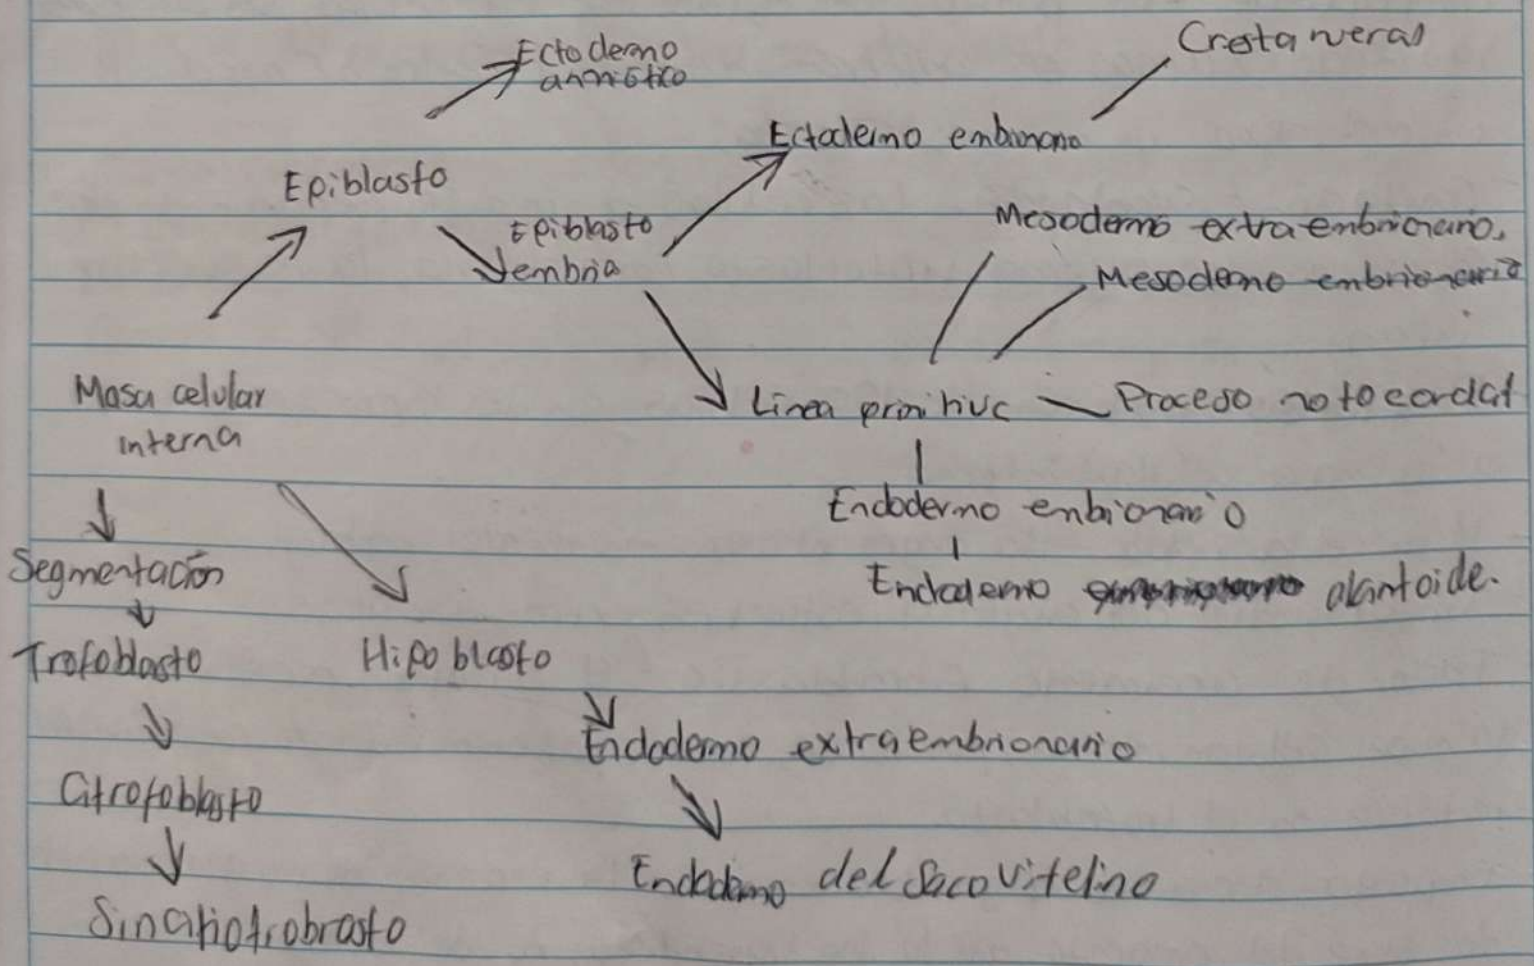 Ectodermo
amniótico
Cresta neural
Ectodermo embrionario
Epiblasto
Epiblasto
embria
Mesodermo extraembrionario.
Mesodermo embrionario
Masa celular
interna
Linea primitiva
Proceso notocordal
Endodermo embrionario
Segmentación
Endodermo alantoide.
Trofoblasto
Hipoblasto
Endodermo extraembrionario
Citrofoblasto
Endodermo del Saco vitelino